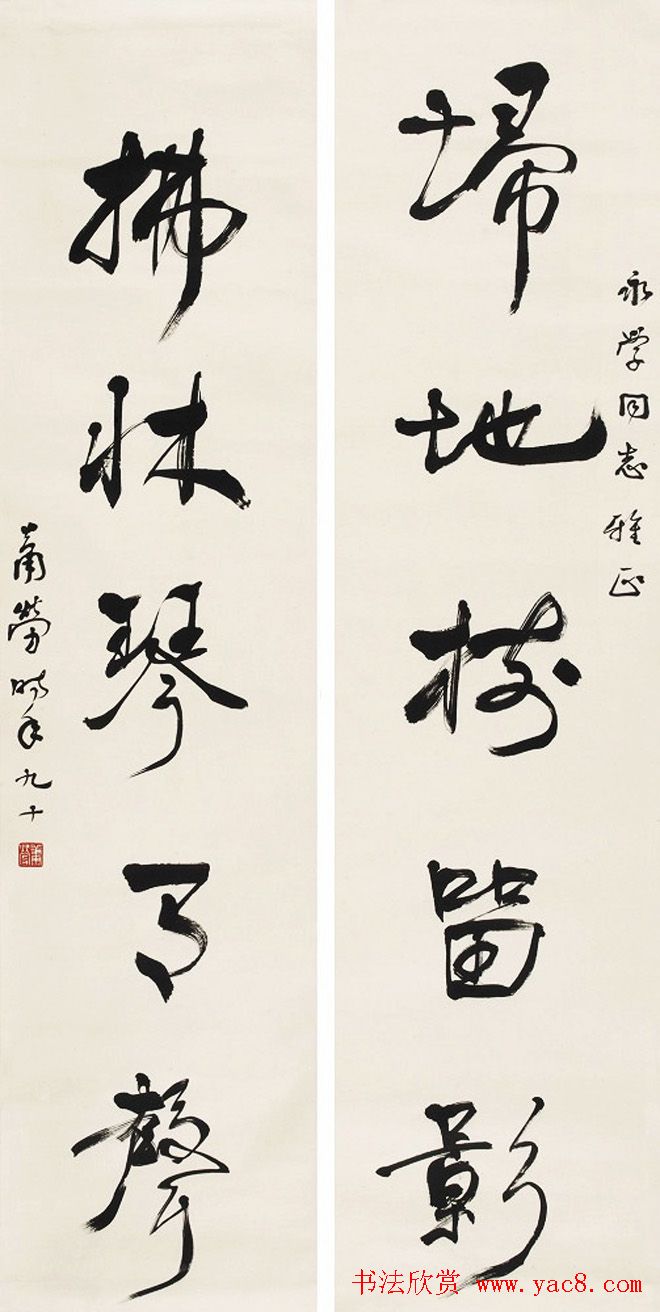 永学同志雅正
埽地树留影
拂牀琴有声
萧劳时年九十
书法欣赏 www.yac8.com